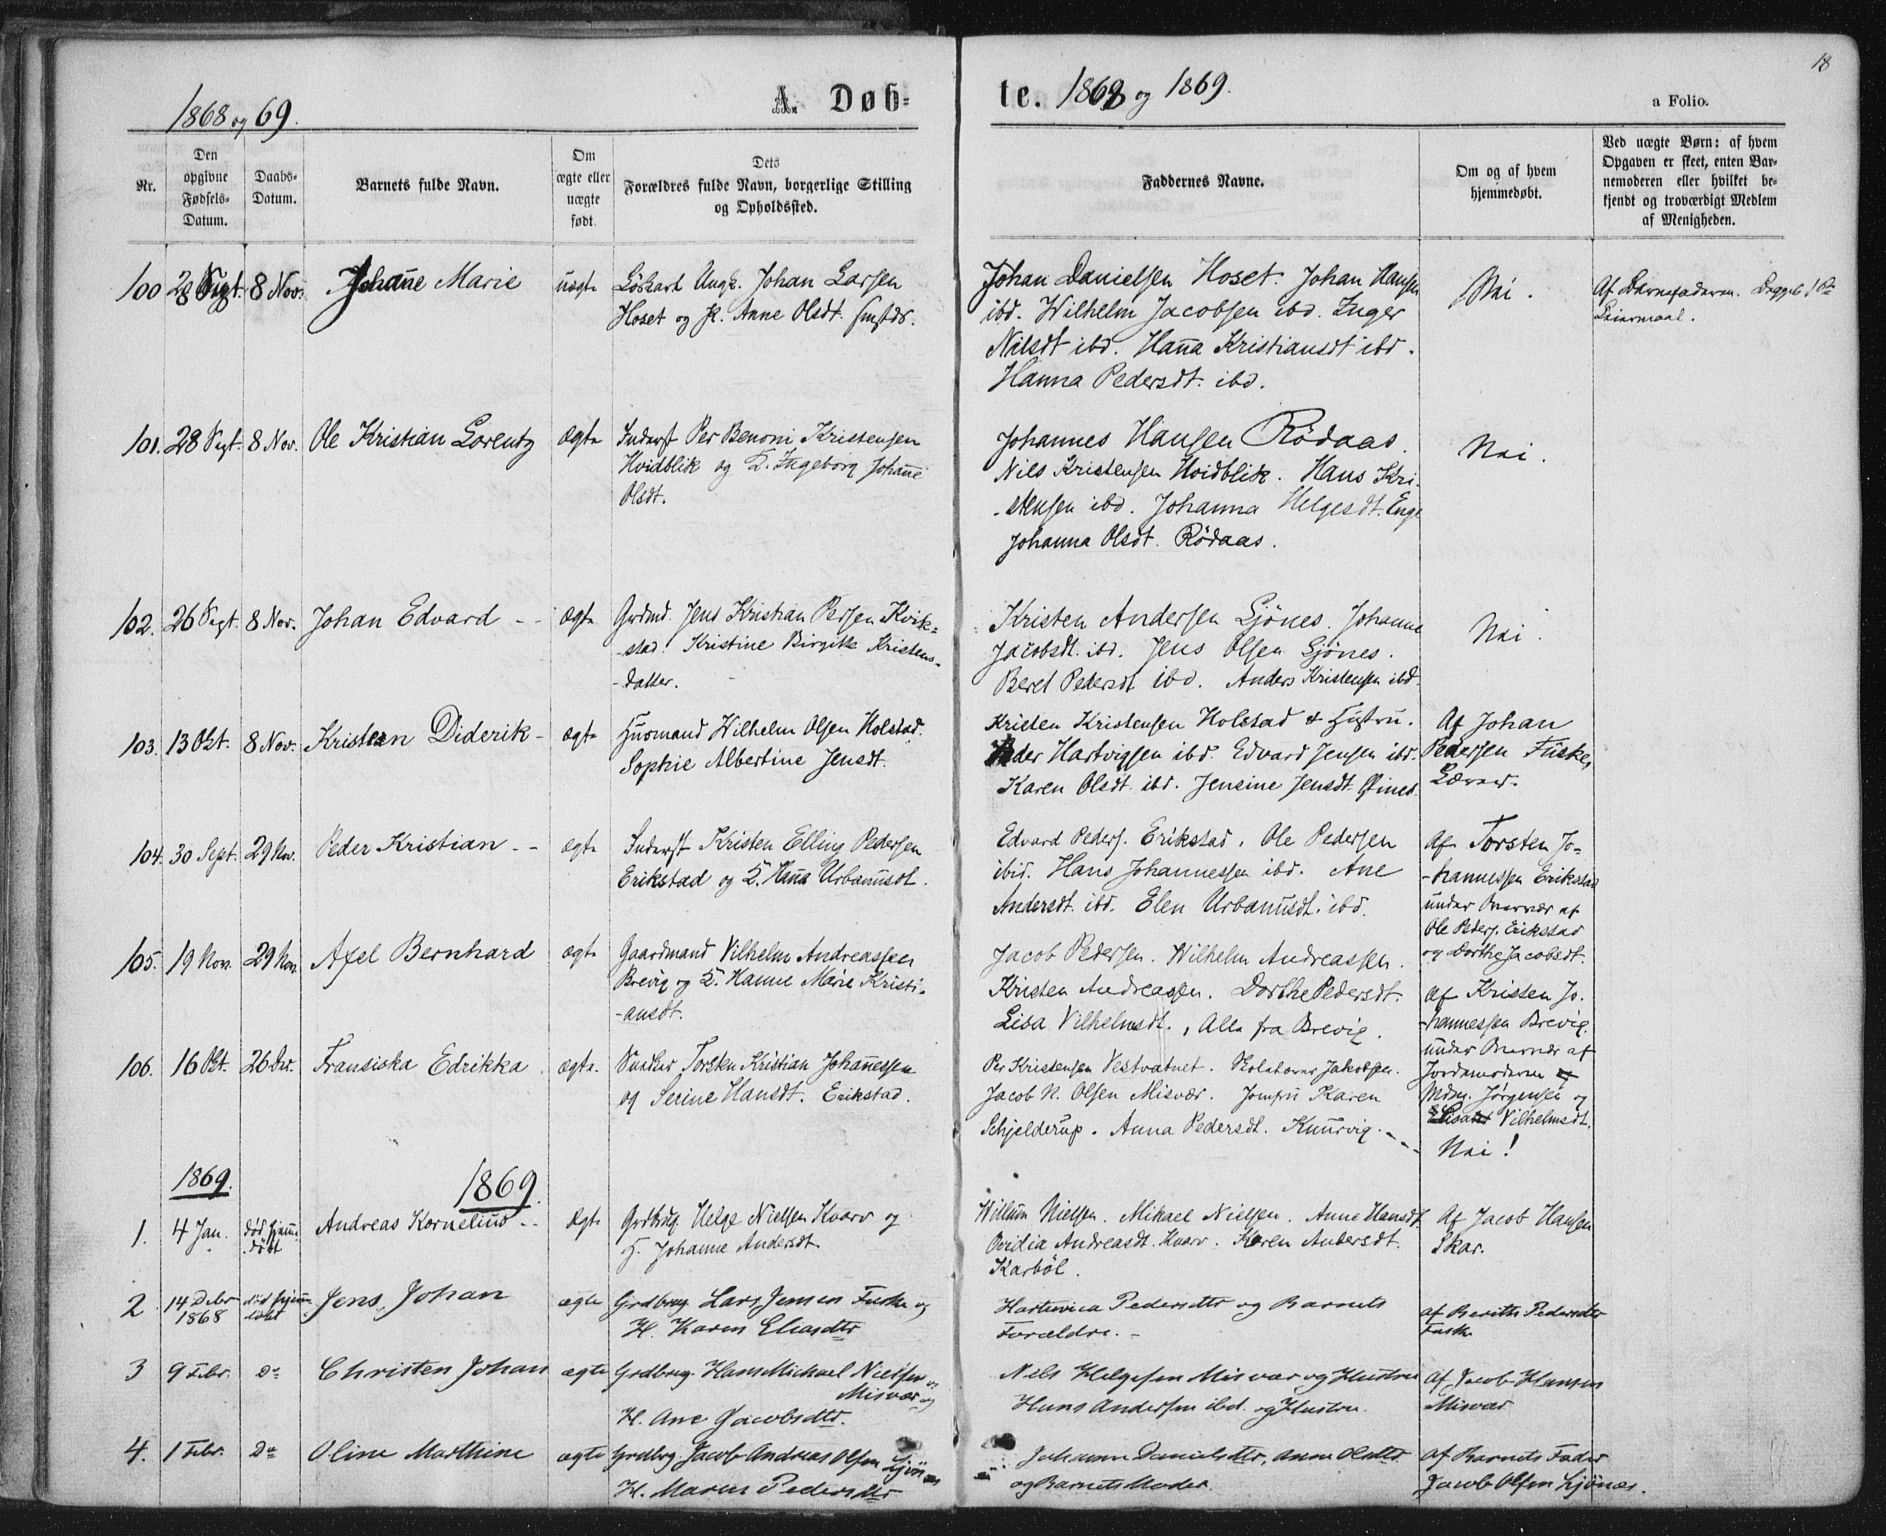 18
1868 og 69.
A. Døb-
te. 1868 og 1869.
a Folio.
Nr.
Den opgivne Fødsels-Datum.
Daabs-Datum.
Barnets fulde Navn.
Om ægte eller uægte født.
Dets Forældres fulde Navn, borgerlige Stilling og Opholdssted.
Faddernes Navne.
Om og af hvem hjemmedøbt.
Ved uægte Børn: af hvem
Opgaven er skeet, enten Bar-
nemoderen eller hvilket be-
kjendt og troværdigt Medlem
af Menigheden.
100 28 Sept. 8 Nov. Johanne Marie uægte Ungk. Johan Larsen
Hoset og P. Anne Olsdt.
Johan Danielsen Hoset. Johan Hansen
ibd. Wilhelm Jacobsen ibd. Inger
Nilsdt ibd. Hanna Kristiansdt ibd.
Hanna Pedersdt. ibd.
Nei.
Af Barnefaderen. Begges 1ste
Leiermaal.
101. 28 Sept. 8 Nov. Ole Kristian Lorentz ægte Inderst Per Benoni Kristensen
Hvidblik og H. Ingeborg Johanne
Olsdt.
Johannes Hansen Rödaas.
Nils Kristensen Hvidblik. Hans Kri-
-stensen ibd. Johanna Helgesdt. Enge
Johanna Olsdt. Rödaas.
Nei.
102. 26 Sept. 8 Nov. Johan Edvard - - ægte Grdmd. Jens Kristian Persen Kvik-
-stad. Kristine Birgitte Kristens-
-datter.
Kristen Andersen Ljönes. Johanne
Jacobsdt. ibd. Jens Olsen Ljönes.
Beret Pedersdt ibd. Anders Kristensen ibd.
Nei.
103. 13 Okt. 8 Nov. Kristen Diderik - ægte Husmand Wilhelm Olsen Holstad.
Sophie Albertine Jensdt.
Kristen Kristensen Holstad & Hustru.
Peder Hartvigsen ibd. Edvard Jensen ibd.
Karen Olsdt. ibd. Jensine Jensdt. Øines.
Af Johan
Pedersen Fuske,
Lærer.
104. 30 Sept. 29 Nov. Peder Kristian - - ægte Inderst Kristen Elling Pedersen
Erikstad og H. Hanna Urbanusdt.
Edvard Peders. Erikstad. Ole Pedersen
ibid. Hans Johannessen ibd. Ane
Andersdt. ibd. Elen Urbanusdt. ibd.
Af Torsten Jo-
-hannessen Erikstad
under Overvær af
Ole Peders. Erikstad
og Dorthe Jacobsdt.
105. 19 Nov. 29 Nov. Axel Bernhard ægte Gaardmand Vilhelm Andreassen
Brevig og H. Hanne Marie Kristi-
-ansdt.
Jacob Pedersen. Wilhelm Andreassen.
Kristen Andreassen. Dorthe Pedersdt.
Lisa Vilhelmsdt., Alle fra Brevig.
af Kristen Jo-
-hannessen Brevig
under Overvær af
Jordemoderen
Mdm. Jørgensen og
Vilhelmsdt.
106. 16 Okt. 26 Dec. Fransiska Edrikka ægte. Torsten Kristian Johannessen
og Serine Hansdt. Erikstad.
Per Kristensen Vestvatnet. Jakobsen.
Jacob N. Olsen Misvær. Jomfru Karen
Schjelderup. Anna Pedersdt. Knurvig. - - -
Nei!
1869. 1869.
1. 4 Jan. død hjemmedöbt Andreas Kornelius - - ægte Grdbrug. Helge Nielsen Kvarv og
H. Johanne Andersdt.
Willum Nielsen. Mikael Nielsen. Anne Hansdt.
Ovidia Andreasdt. Kvarv. Karen Andersdt.
Karböl.
Af Jacob Hansen
Skar.
2 14 Debr 1868 død hjemmedöbt Jens Johan ægte Grdbrug. Lars Jensen Fuske og
H. Karen Eliasdtr
Hartvica Pedersdtr og Barnets
Forældre. -
af Berith Pedersdtr
Fuske
3 9 Febr. Do Christen Johan ægte Grdbrug. Hans Michael Nielsen
Misvær og
H. Ane Jacobsdtr.
Nels Helgesen Misvær og Hustru
Hans Andersen ibd. og Hustru
af Jacob Hansen
Misvær
4. 1 Febr. Do Oline Marthine ægte Grdbrg Jacob Andreas Olsen Ljönæs
H. Maren Pedersdtr
Johanna Danielsdtr, Anne Olsdtr
og Barnets Moder.
af Barnets Fader
Jacob Olsen Ljönæs.